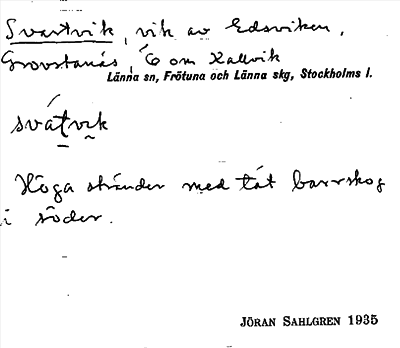 Svartvik, vik av Edsviken,
Grovstanäs, Ö om Kallvik
Länna sn, Frötuna och Länna skg, Stockholms l.
svátvik
Höga stränder med tät barrskog
i söder.
JÖRAN SAHLGREN 1935